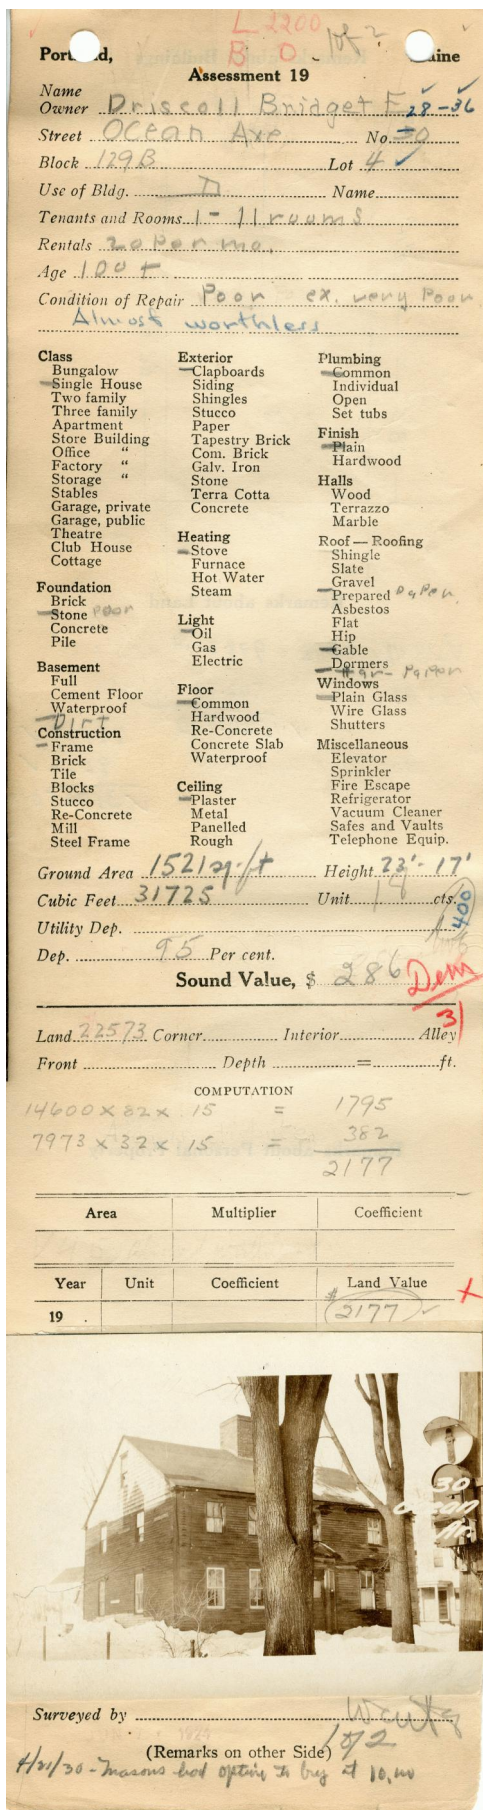 L 2200
B O.
Portland, Maine
Assessment 19
Name
Owner Driscoll Bridget E 28-36
Street Ocean Ave No. 30
Block 129B Lot 4
Use of Bldg. D Name
Tenants and Rooms 1 - 11 rooms
Rentals 20 Per mo.
Age 100+
Condition of Repair Poor ex. very Poor
Almost worthless
Class
Bungalow
Single House
Two family
Three family
Apartment
Store Building
Office "
Factory "
Storage "
Stables
Garage, private
Garage, public
Theatre
Club House
Cottage
Foundation
Brick
Stone poor
Concrete
Pile
Basement
Full
Cement Floor
Waterproof
Dirt
Construction
Frame
Brick
Tile
Blocks
Stucco
Re-Concrete
Mill
Steel Frame
Exterior
Clapboards
Siding
Shingles
Stucco
Paper
Tapestry Brick
Com. Brick
Galv. Iron
Stone
Terra Cotta
Concrete
Heating
Stove
Furnace
Hot Water
Steam
Light
Oil
Gas
Electric
Floor
Common
Hardwood
Re-Concrete
Concrete Slab
Waterproof
Ceiling
Plaster
Metal
Panelled
Rough
Plumbing
Common
Individual
Open
Set tubs
Finish
Plain
Hardwood
Halls
Wood
Terrazzo
Marble
Roof — Roofing
Shingle
Slate
Gravel
Prepared Paper
Asbestos
Flat
Hip
Gable
Dormers
Windows
Plain Glass
Wire Glass
Shutters
Miscellaneous
Elevator
Sprinkler
Fire Escape
Refrigerator
Vacuum Cleaner
Safes and Vaults
Telephone Equip.
Ground Area 1521 sq. ft Height 23'- 17'
Cubic Feet 31725 Unit 18 cts.
400
Utility Dep.
Dep. 95 Per cent.
Sound Value, $ 286
Dem
31
Land 22573 Corner Interior Alley
Front Depth = ft.
COMPUTATION
14600 x 82 x 15 = 1795
7973 x 32 x 15 = 382
2177
Area Multiplier Coefficient
Year Unit Coefficient Land Value
19 $ 2177
30
Ocean
Av.
Surveyed by
(Remarks on other Side)
4/21/30 - Masons had option to buy at 10,000